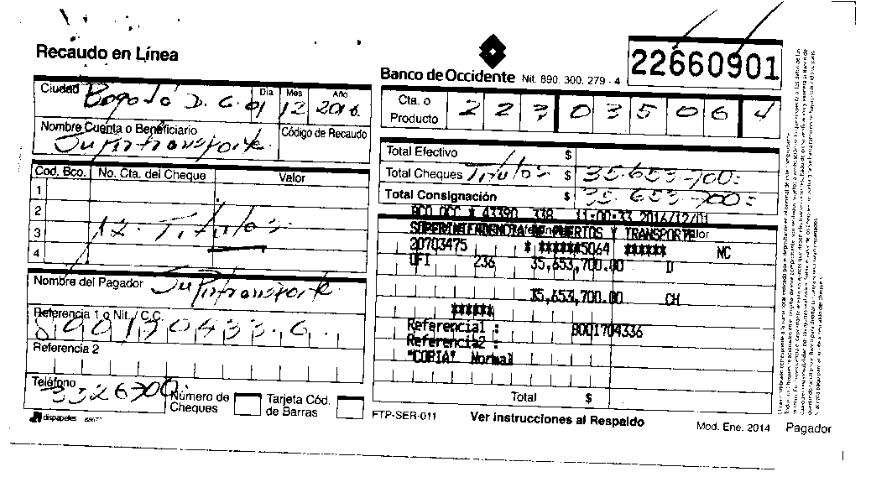 Recaudo en Línea
Banco de Occidente Nit. 890. 300. 279 - 4
22660901
Ciudad Bogotá D.C. Día 01 Mes 12 Año 2016
Cta. o Producto 2 2 3 0 3 5 0 6 4
Nombre Cuenta o Beneficiario Código de Recaudo
Supertransporte
Total Efectivo $
Total Cheques Titulos $ 35.653.700=
Total Consignación $ 35.653.700=
Cod. Bco. No. Cta. del Cheque Valor
1
2
3 12 Titulos
4
BCO OCC * 43390 338 11:00:33 2016/12/01
SUPERINTENDENCIA DE PUERTOS Y TRANSPORTE
20703475 * ******5064 ****** NC
OFI 236 35,653,700.00 D
35,653,700.00 CH
******
Referencia1 : 8001704336
Referencia2 :
"COPIA" Normal
Nombre del Pagador Supertransporte
Referencia 1 o Nit. / C.C.
Referencia 2
Teléfono 3526700
Número de Cheques
Tarjeta Cód. de Barras
Total $
dispapeles
FTP-SER-011 Ver instrucciones al Respaldo Mod. Ene. 2014 Pagador